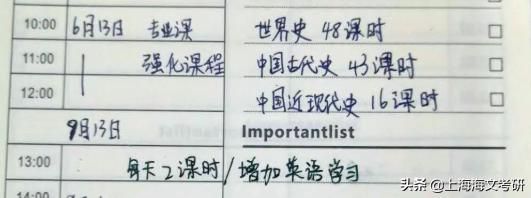 10:00 6月13日 专业课 世界史 48课时
11:00 强化课程 中国古代史 43课时
12:00 中国近现代史 16课时
9月13日 Importantlist
13:00 每天2课时/增加英语学习
头条@上海海文考研